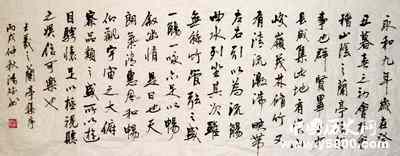 永和九年歲在癸
丑暮春之初會于會
稽山陰之蘭亭修禊
事也群賢畢至少長
咸集此地有崇山
峻嶺茂林修竹又
有清流激湍映帶
左右引以為流觴
曲水列坐其次雖
無絲竹管弦之盛
一觴一詠亦足以暢
叙幽情是日也天
朗氣清惠風和暢
仰觀宇宙之大俯
察品類之盛所以遊
目騁懷足以極視聽
之娛信可樂也
王羲之蘭亭集序
丙戌仲秋